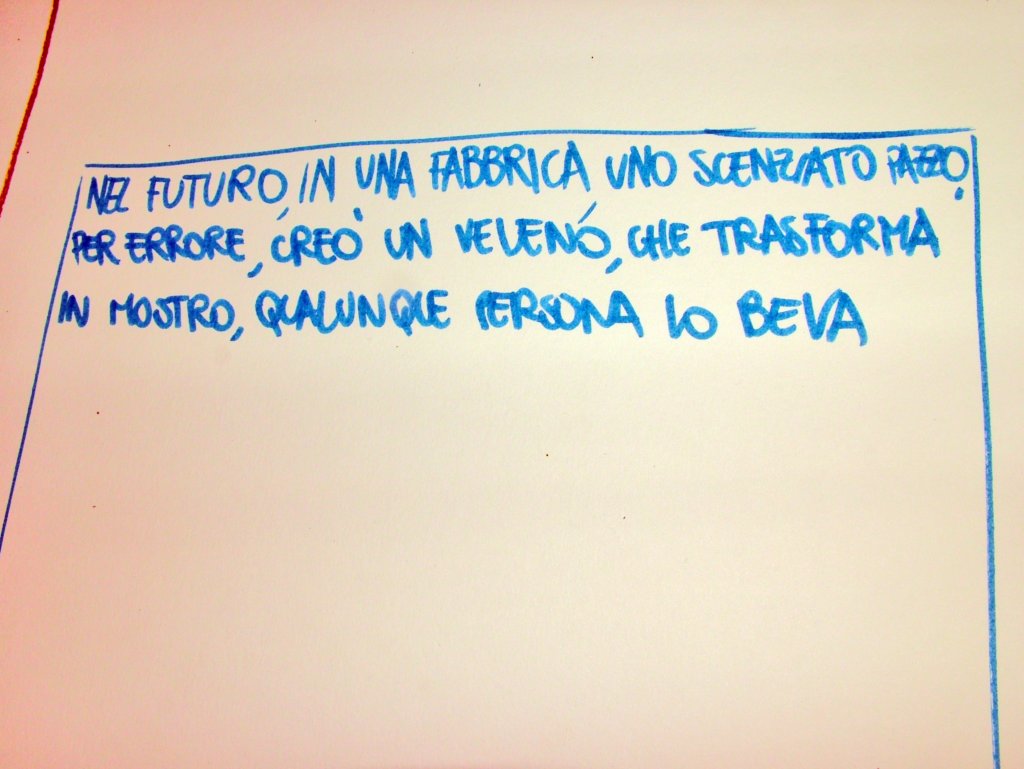 NEL FUTURO, IN UNA FABBRICA UNO SCENZIATO PAZZO,
PER ERRORE, CREO' UN VELENO, CHE TRASFORMA
IN MOSTRO, QUALUNQUE PERSONA LO BEVA